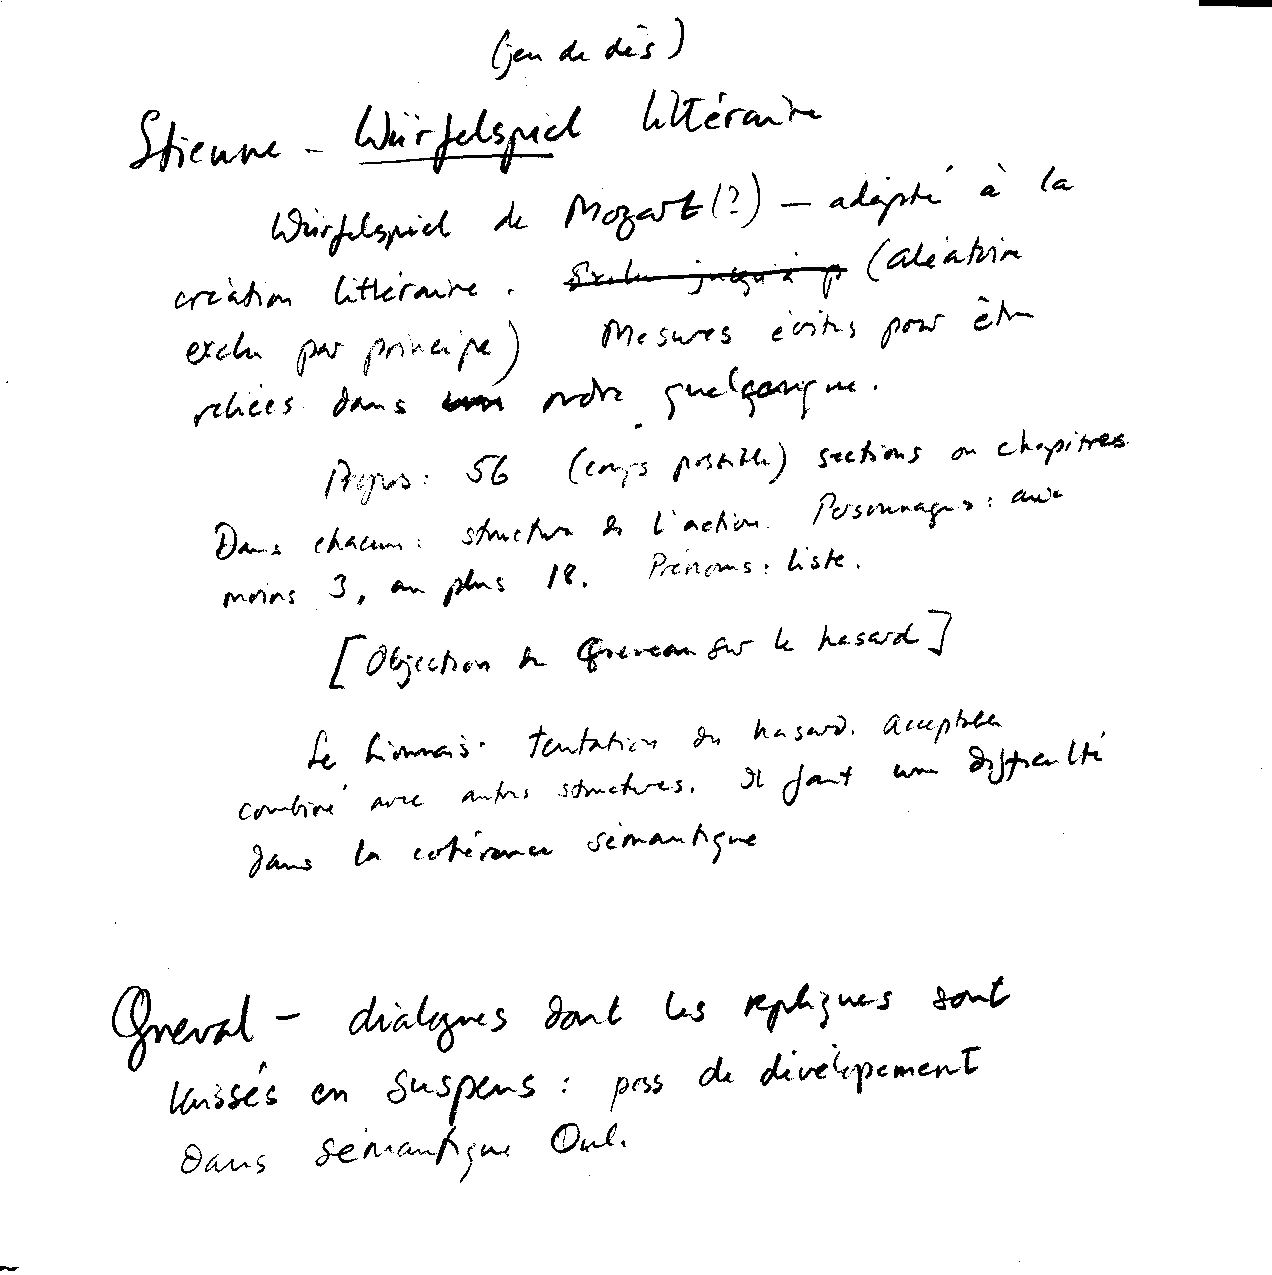 (jeu de dès)
Stienne - Würfelspiel littéraire
Würfelspiel de Mozart (?) — adapté à la
création littéraire. (aléatoire
exclu par principe) Mesures écrites pour être
reliées dans ordre quelconque.
Propos: 56 (coups possible) sections ou chapitres
Dans chacun: structure de l'action. Personnages: au
moins 3, au plus 18. Prénoms: liste.
[Objection de Queneau sur le hasard]
Le Lionnais: tentation du hasard. acceptable
combiné avec autres structures. Il faut une difficulté
dans la cohérence sémantique
Queval - dialogues dont les repliques sont
laissés en suspens: poss de dévélopement
dans sémantique Oul.